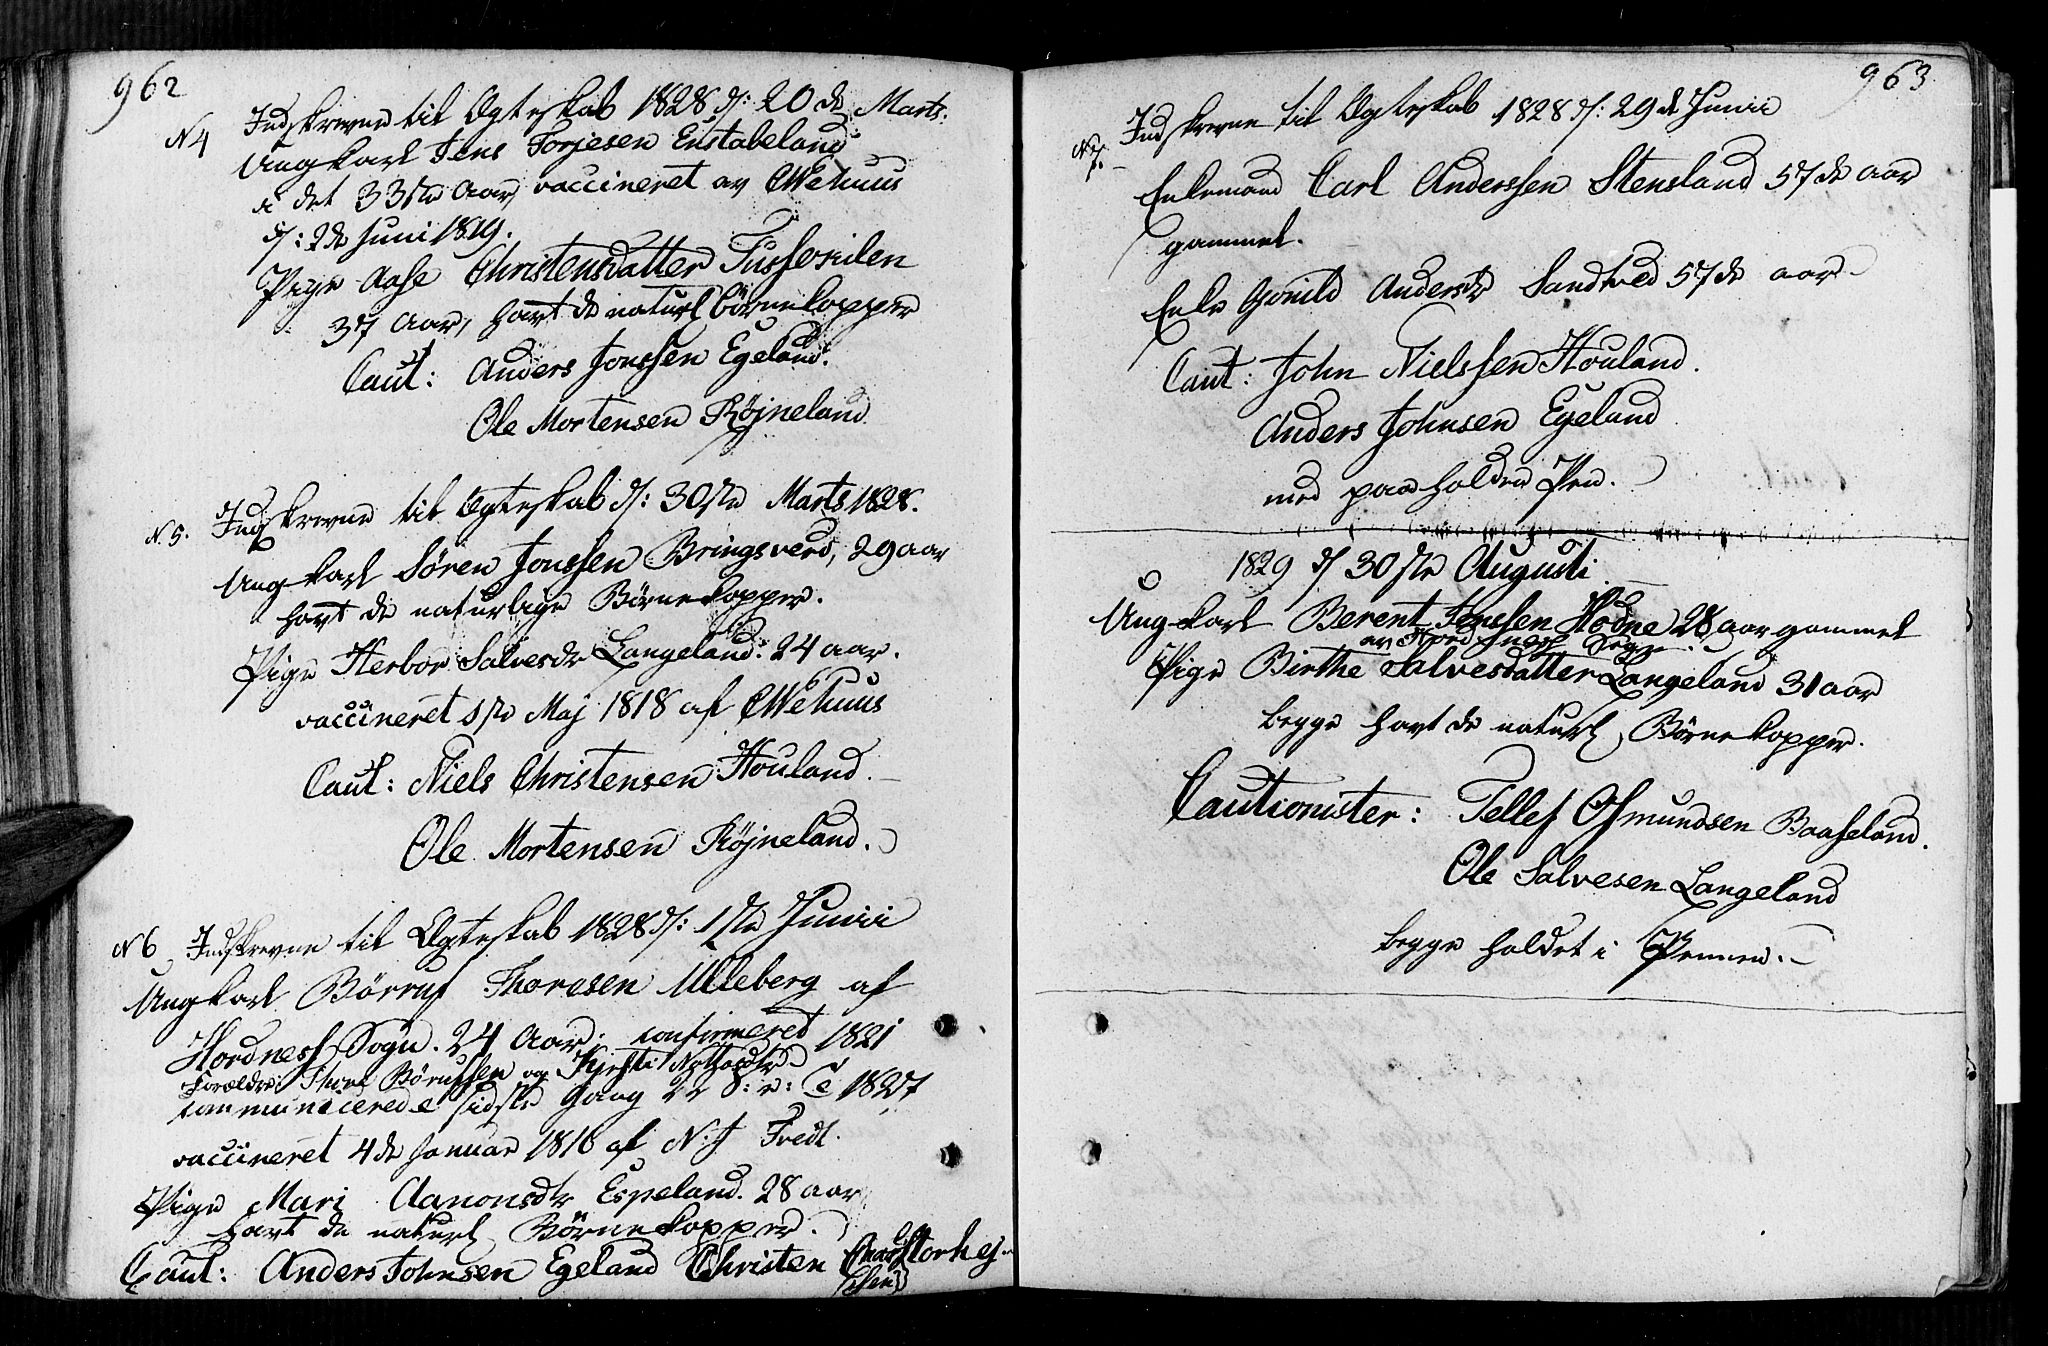 962
N 4 Indskrevne til Ægteskab 1828 d: 20de Marts.
Ungkarl Jens Torjesen Enstabeland
i det 33te Aar, vaccineret av CWehuus
d: 2de Juni 1819.
Pige Aase Christensdatter
37 Aar, havt de naturl Börnekopper
Caut: Anders Jonssen Egeland.
Ole Mortensen Röjneland
N. 5. Indskrevne til Ægteskab d: 30te Marts 1828.
Ungkarl Sören Jonssen Bringsverd, 29 aar
havt de naturlige Börnekopper.
Pige Herbor Salvesdr Langeland: 24 aar.
vaccineret Maj 1818 af CWehuus
Caut: Niels Christensen Houland.
Ole Mortensen Röjneland.
N 6 Indskrevne til Ægteskab 1828 d: 1te Junii
Ungkarl Börruf Thoresen Ulleberg af
Hordness Sogn. 24 Aar; confirmeret 1821
Forældre: Thore Börufsen og
communicerede sidste Gang 1827
vaccineret 4de Januar 1816 af N: J Tvedt.
Pige Mari Aanonsdr Espeland. 28 aar
havt de naturl Börnekopper.
Caut: Anders Johnsen Egeland Christen
963
N 7. Indskrevne til Ægteskab 1828 d: 29de Junii
Enkemand Carl Anderssen Stensland 57de aar
gammel.
Enke Gonild Andersdr Sandved 57de aar
Caut: John Nielssen Houland.
Anders Johnsen Egeland
med paaholden Pen.
1829 d 30te Augusti
Ungkarl Berent Jenssen Hodne 28 aar gammel
av Hordness Sogn
Pige Birthe Salvesdatter Langeland 31 aar
begge havt de naturl Börnekopper.
Cautionister: Tellef Osmundsen Baaseland.
Ole Salvesen Langeland
begge holdet i Pennen.